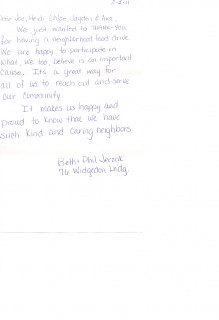 Dear Joe, Heidi, Chloe, Jayden, & Ava,
We just wanted to thank you
for having a neighborhood food drive.
We are happy to participate in
what we, too, believe is an important
cause. It's a great way for
all of us to reach out and serve
our community.
It makes us happy and
proud to know that we have
such kind and caring neighbors.
Beth & Phil
76 Widgedon Lndg.